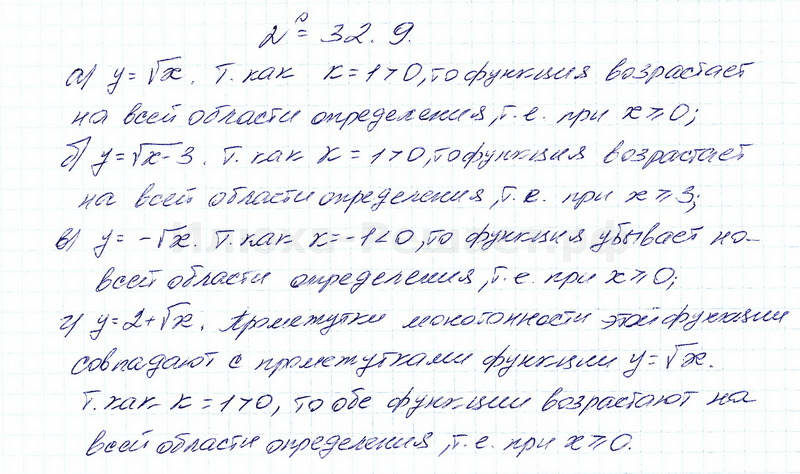 № 32.9.
а) y = √x. Т. как k = 1 > 0, то функция возрастает
на всей области определения, т.е. при x ≥ 0;
б) y = √x-3. Т. как k = 1 > 0, то функция возрастает
на всей области определения, т.е. при x ≥ 3;
в) y = -√x. Т. как k = -1 < 0, то функция убывает на
всей области определения, т.е. при x ≥ 0;
г) y = 2+√x. Промежутки монотонности этой функции
совпадают с промежутками функции y = √x.
Т. как k = 1 > 0, то обе функции возрастают на
всей области определения, т.е. при x ≥ 0.